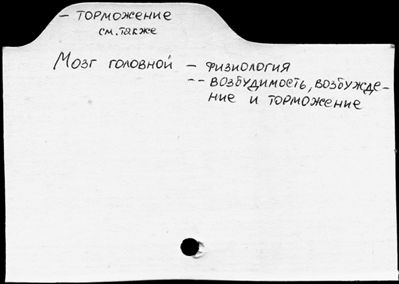 – ТОРМОЖЕНИЕ
см. также
Мозг головной – физиология
-- возбудимость, возбужде-
ние и торможение